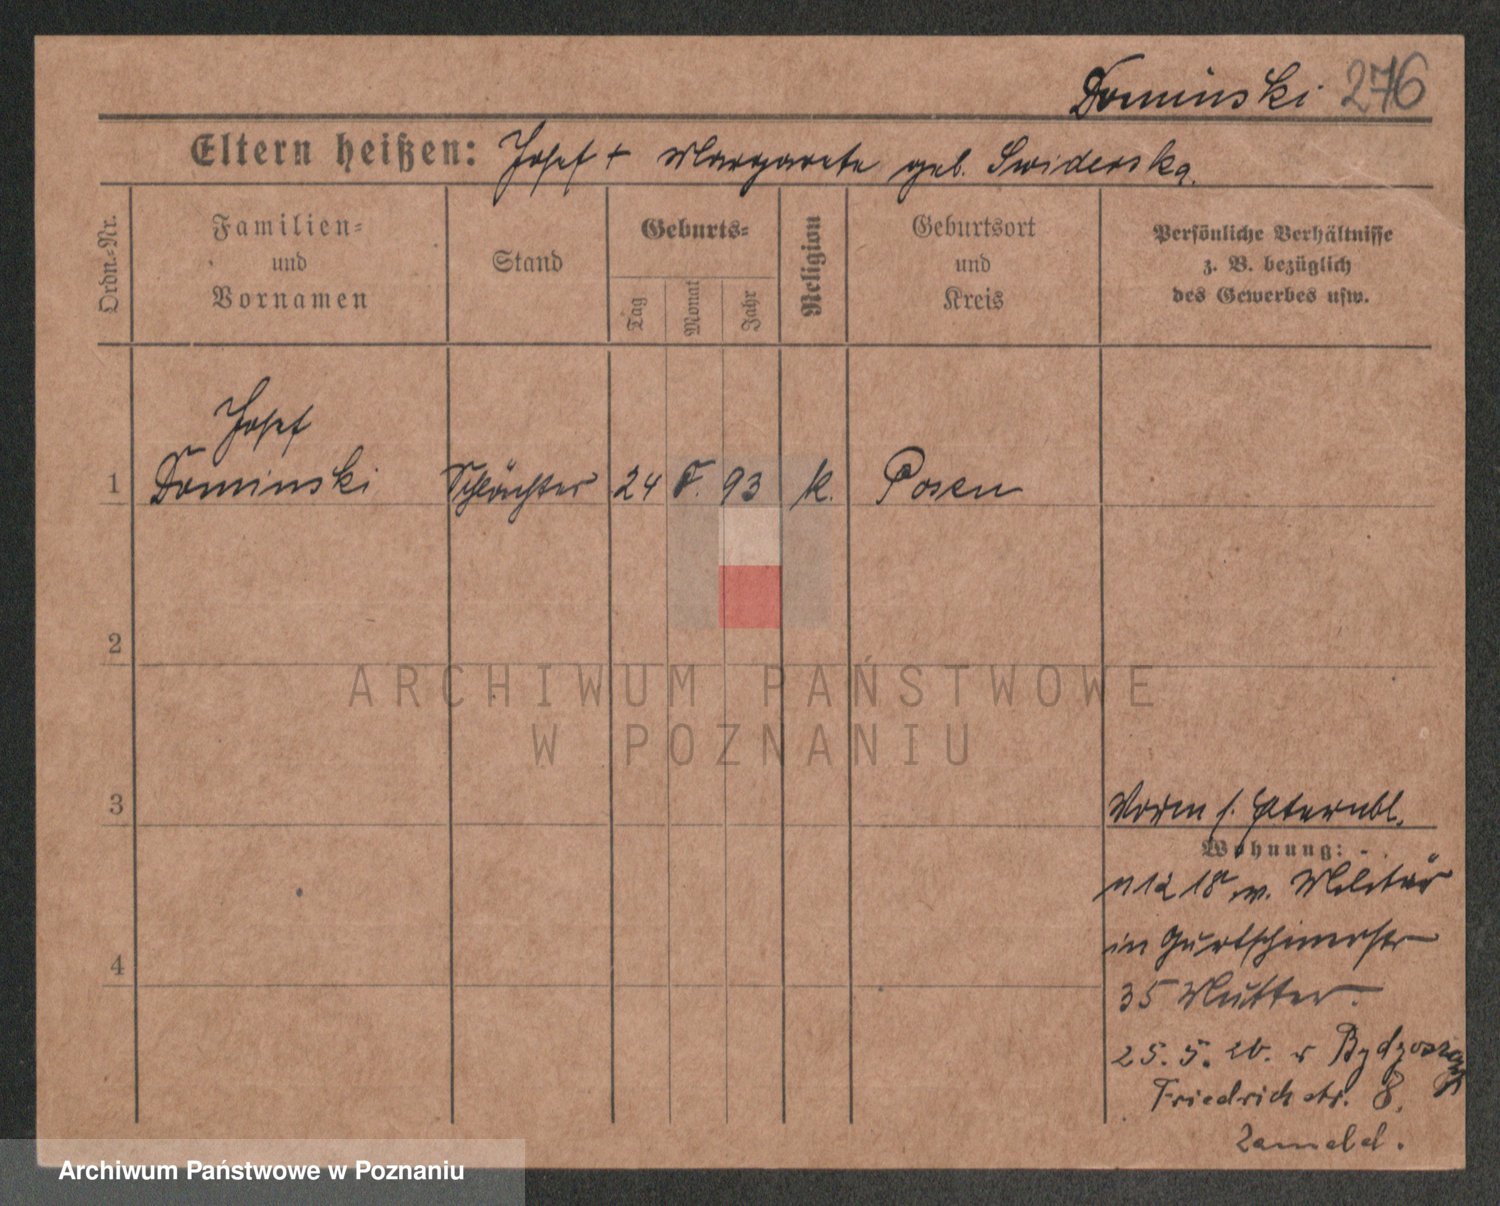 Dominski 276
Eltern heißen: Josef + Margarete geb. Swiderska.
Ordn.-Nr.
Familien-
und
Vornamen
Stand
Geburts-
Tag
Monat
Jahr
Religion
Geburtsort
und
Kreis
Persönliche Verhältnisse
z. B. bezüglich
des Gewerbes usw.
Josef
1 Dominski Schlächter 24 93 k. Posen
2
ARCHIWUM PAŃSTWOWE
W POZNANIU
3
Vorm s. Elternbl.
Wohnung:
12 18 v. Militär
in
4
35 Mutter.
25. 5. 20. Bydgoszcz
Friedrichstr. 8.
Zameld.
Archiwum Państwowe w Poznaniu